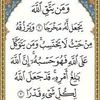 وَمَن يَتَّقِ اللَّهَ
يَجْعَل لَّهُ مَخْرَجًا ۝ وَيَرْزُقْهُ
مِنْ حَيْثُ لَا يَحْتَسِبُ وَمَن يَتَوَكَّلْ
عَلَى اللَّهِ فَهُوَ حَسْبُهُ إِنَّ اللَّهَ
بَالِغُ أَمْرِهِ قَدْ جَعَلَ اللَّهُ
لِكُلِّ شَيْءٍ قَدْرًا ۝